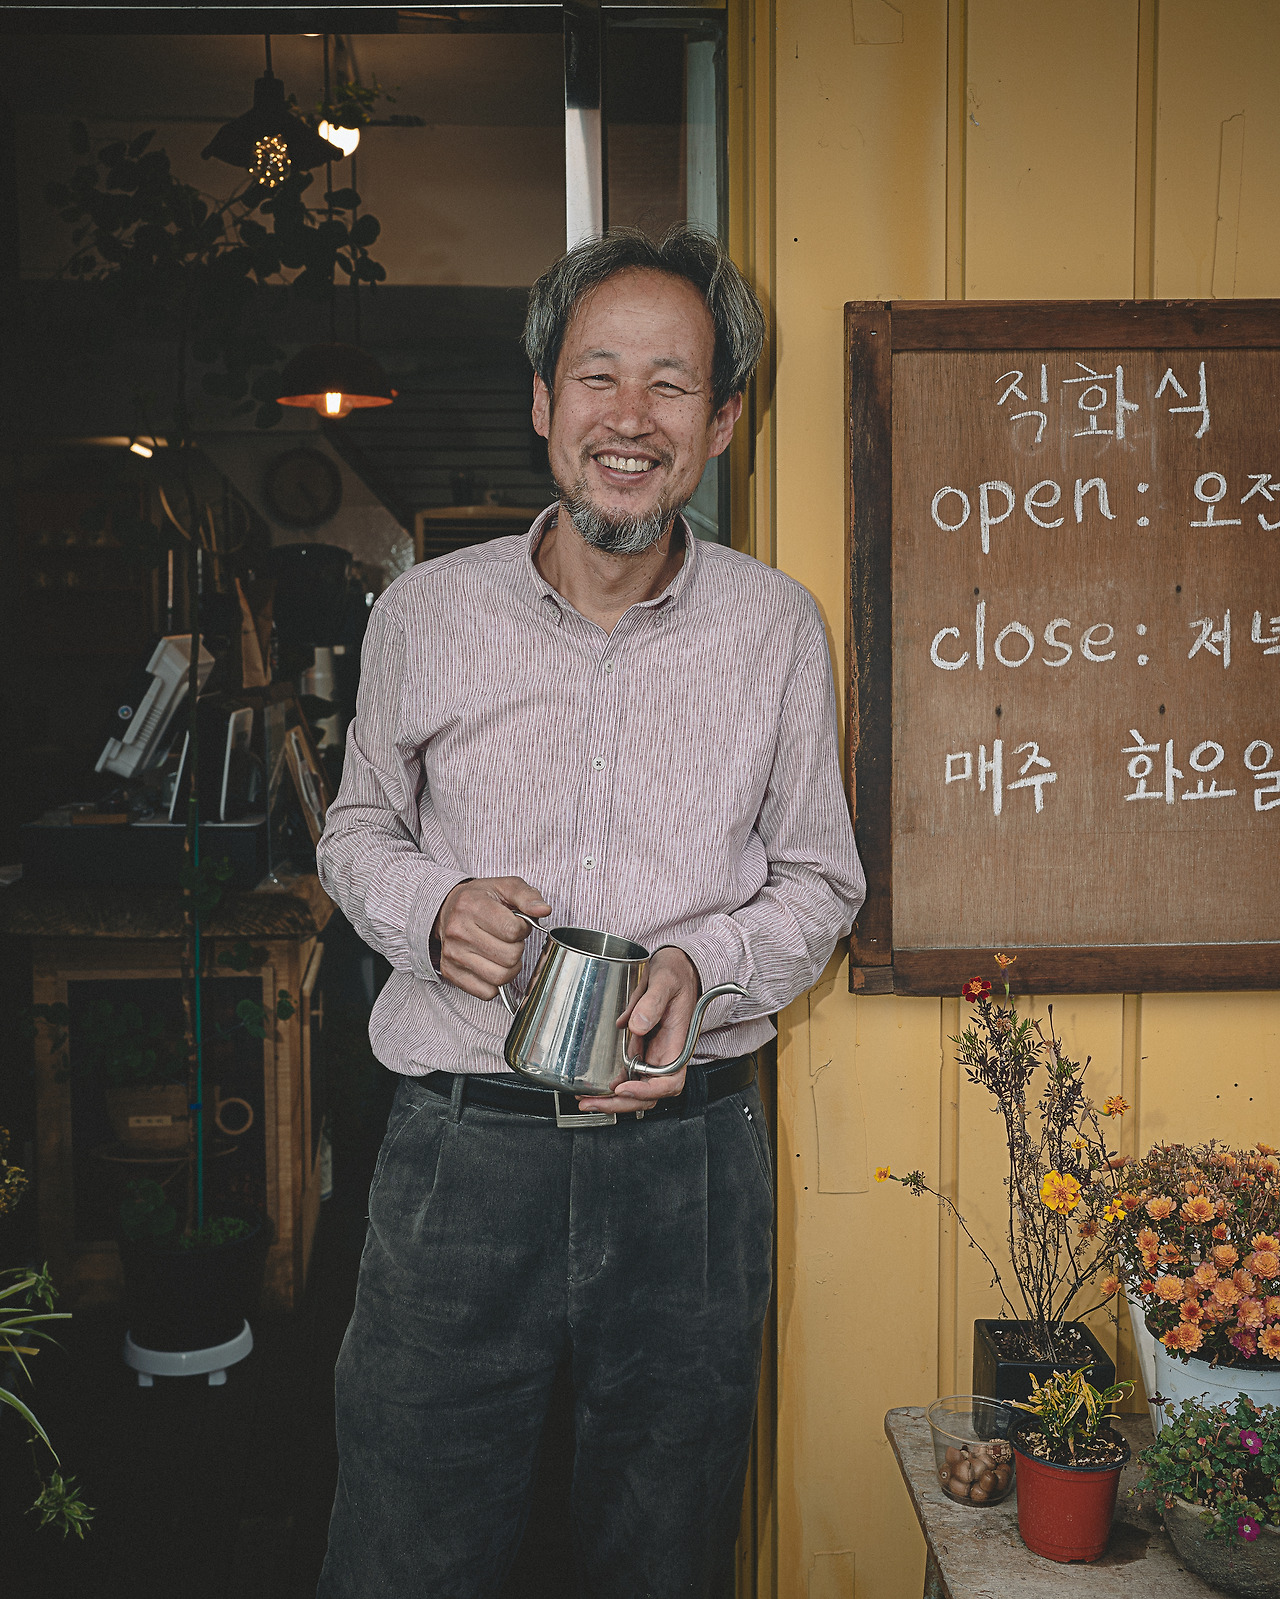 직화식
open: 오전
close: 저녁
매주 화요일